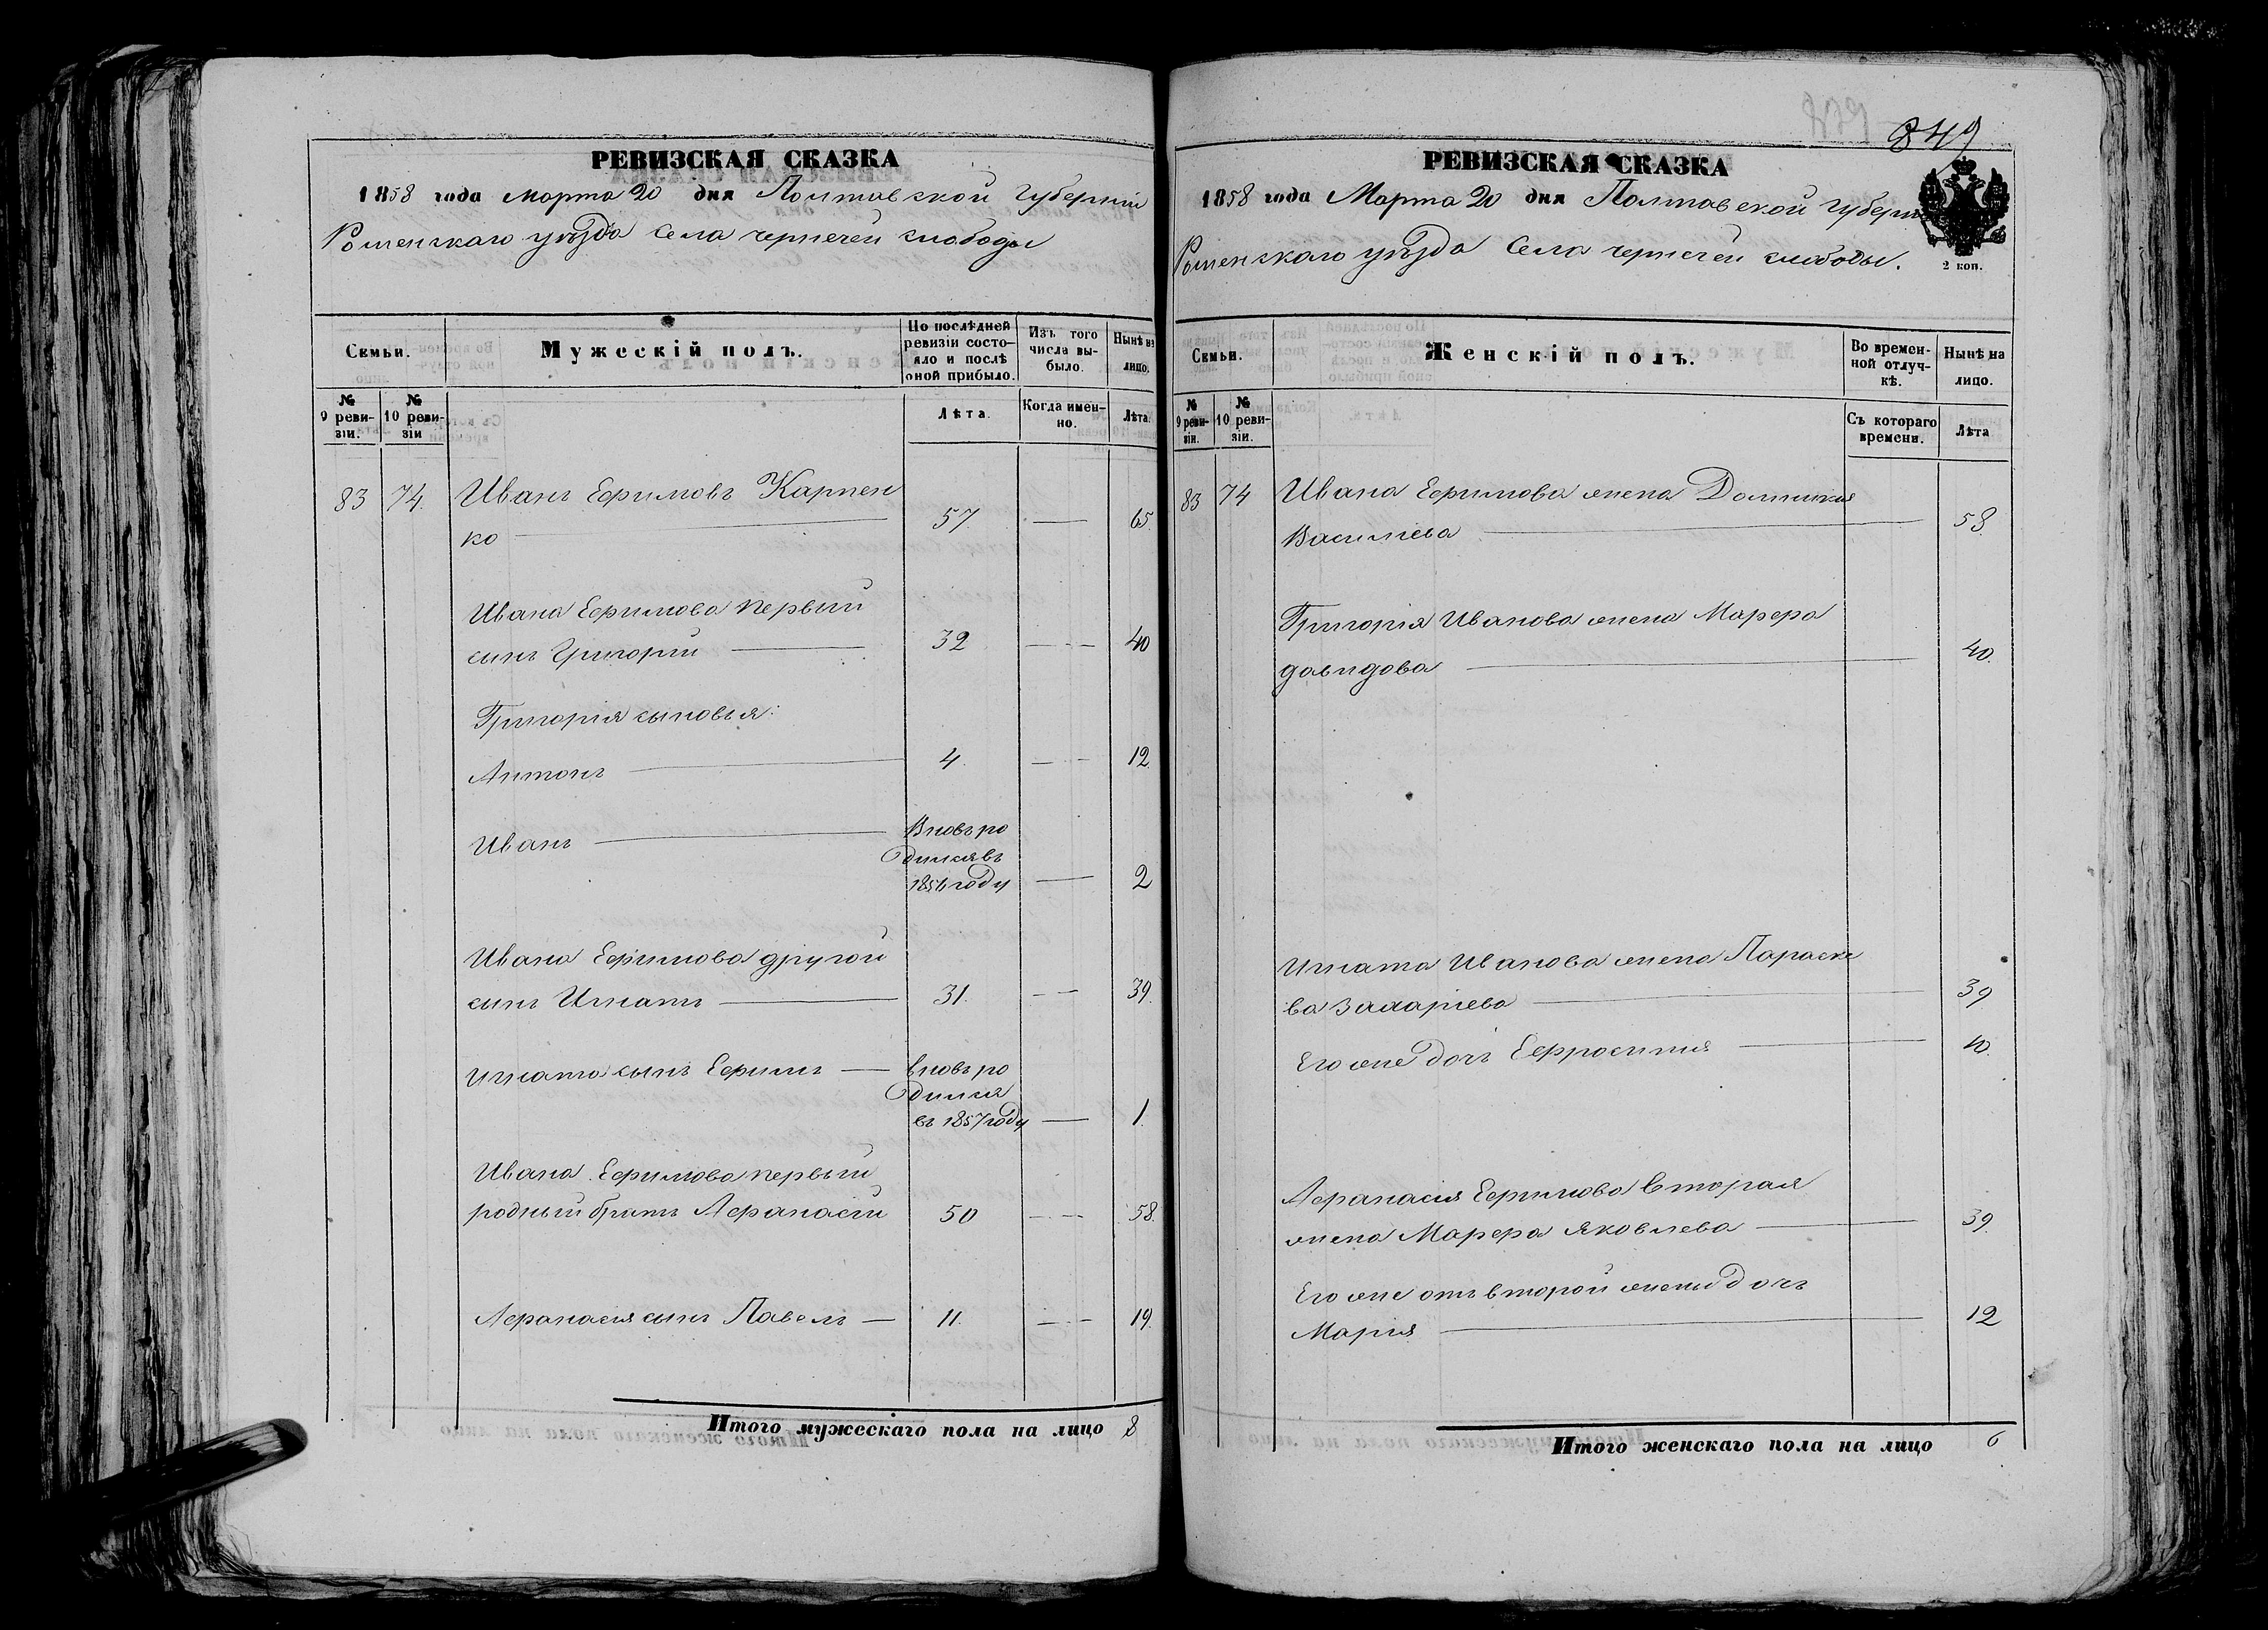 РЕВИЗСКАЯ СКАЗКА
1858 года Марта 20 дня Полтавской губерніи
Роменскаго уѣзда села чернечей слободы
Семьи.
Мужескій полъ.
По послѣдней ревизіи состояло и послѣ оной прибыло.
Изъ того числа выбыло.
Нынѣ на лицо.
№ 9 ревизіи.
№ 10 ревизіи
Лѣта.
Когда именно.
Лѣта.
83 74. Иванъ Ефимовъ Карпен
ко 57. 65.
Ивана Ефимова первый
сынъ Григорій 32 40
Григорія сыновья:
Антонъ 4 12
Иванъ Вновь ро
дился въ
1856 году 2
Ивана Ефимова другой
сынъ Игнатъ 31. 39.
Игната сынъ Ефимъ вновь ро
дился
въ 1857 году 1.
Ивана Ефимова первый
родный братъ Афанасій 50 58.
Афанасія сынъ Павелъ 11. 19.
Итого мужескаго пола на лицо 8
849
РЕВИЗСКАЯ СКАЗКА
1858 года Марта 20 дня Полтавской губерн
Роменскаго уѣзда Села чернечей слободы.
2 коп.
Семьи.
Женскій полъ.
Во временной отлучкѣ.
Нынѣ на лицо.
№ 9 ревизіи.
№ 10 ревизіи.
Съ котораго времени.
Лѣта
83 74 Ивана Ефимова жена Домникія
Василіева 58.
Григорія Иванова жена Марфа
давидова 40.
Игната Иванова жена Параске
ва Захаріева 39
Его же дочь Ефросинія 10.
Афанасія Ефимова вторая
жена Марфа Яковлева 39.
Его же отъ второй жены дочь
Марія 12
Итого женскаго пола на лицо 6